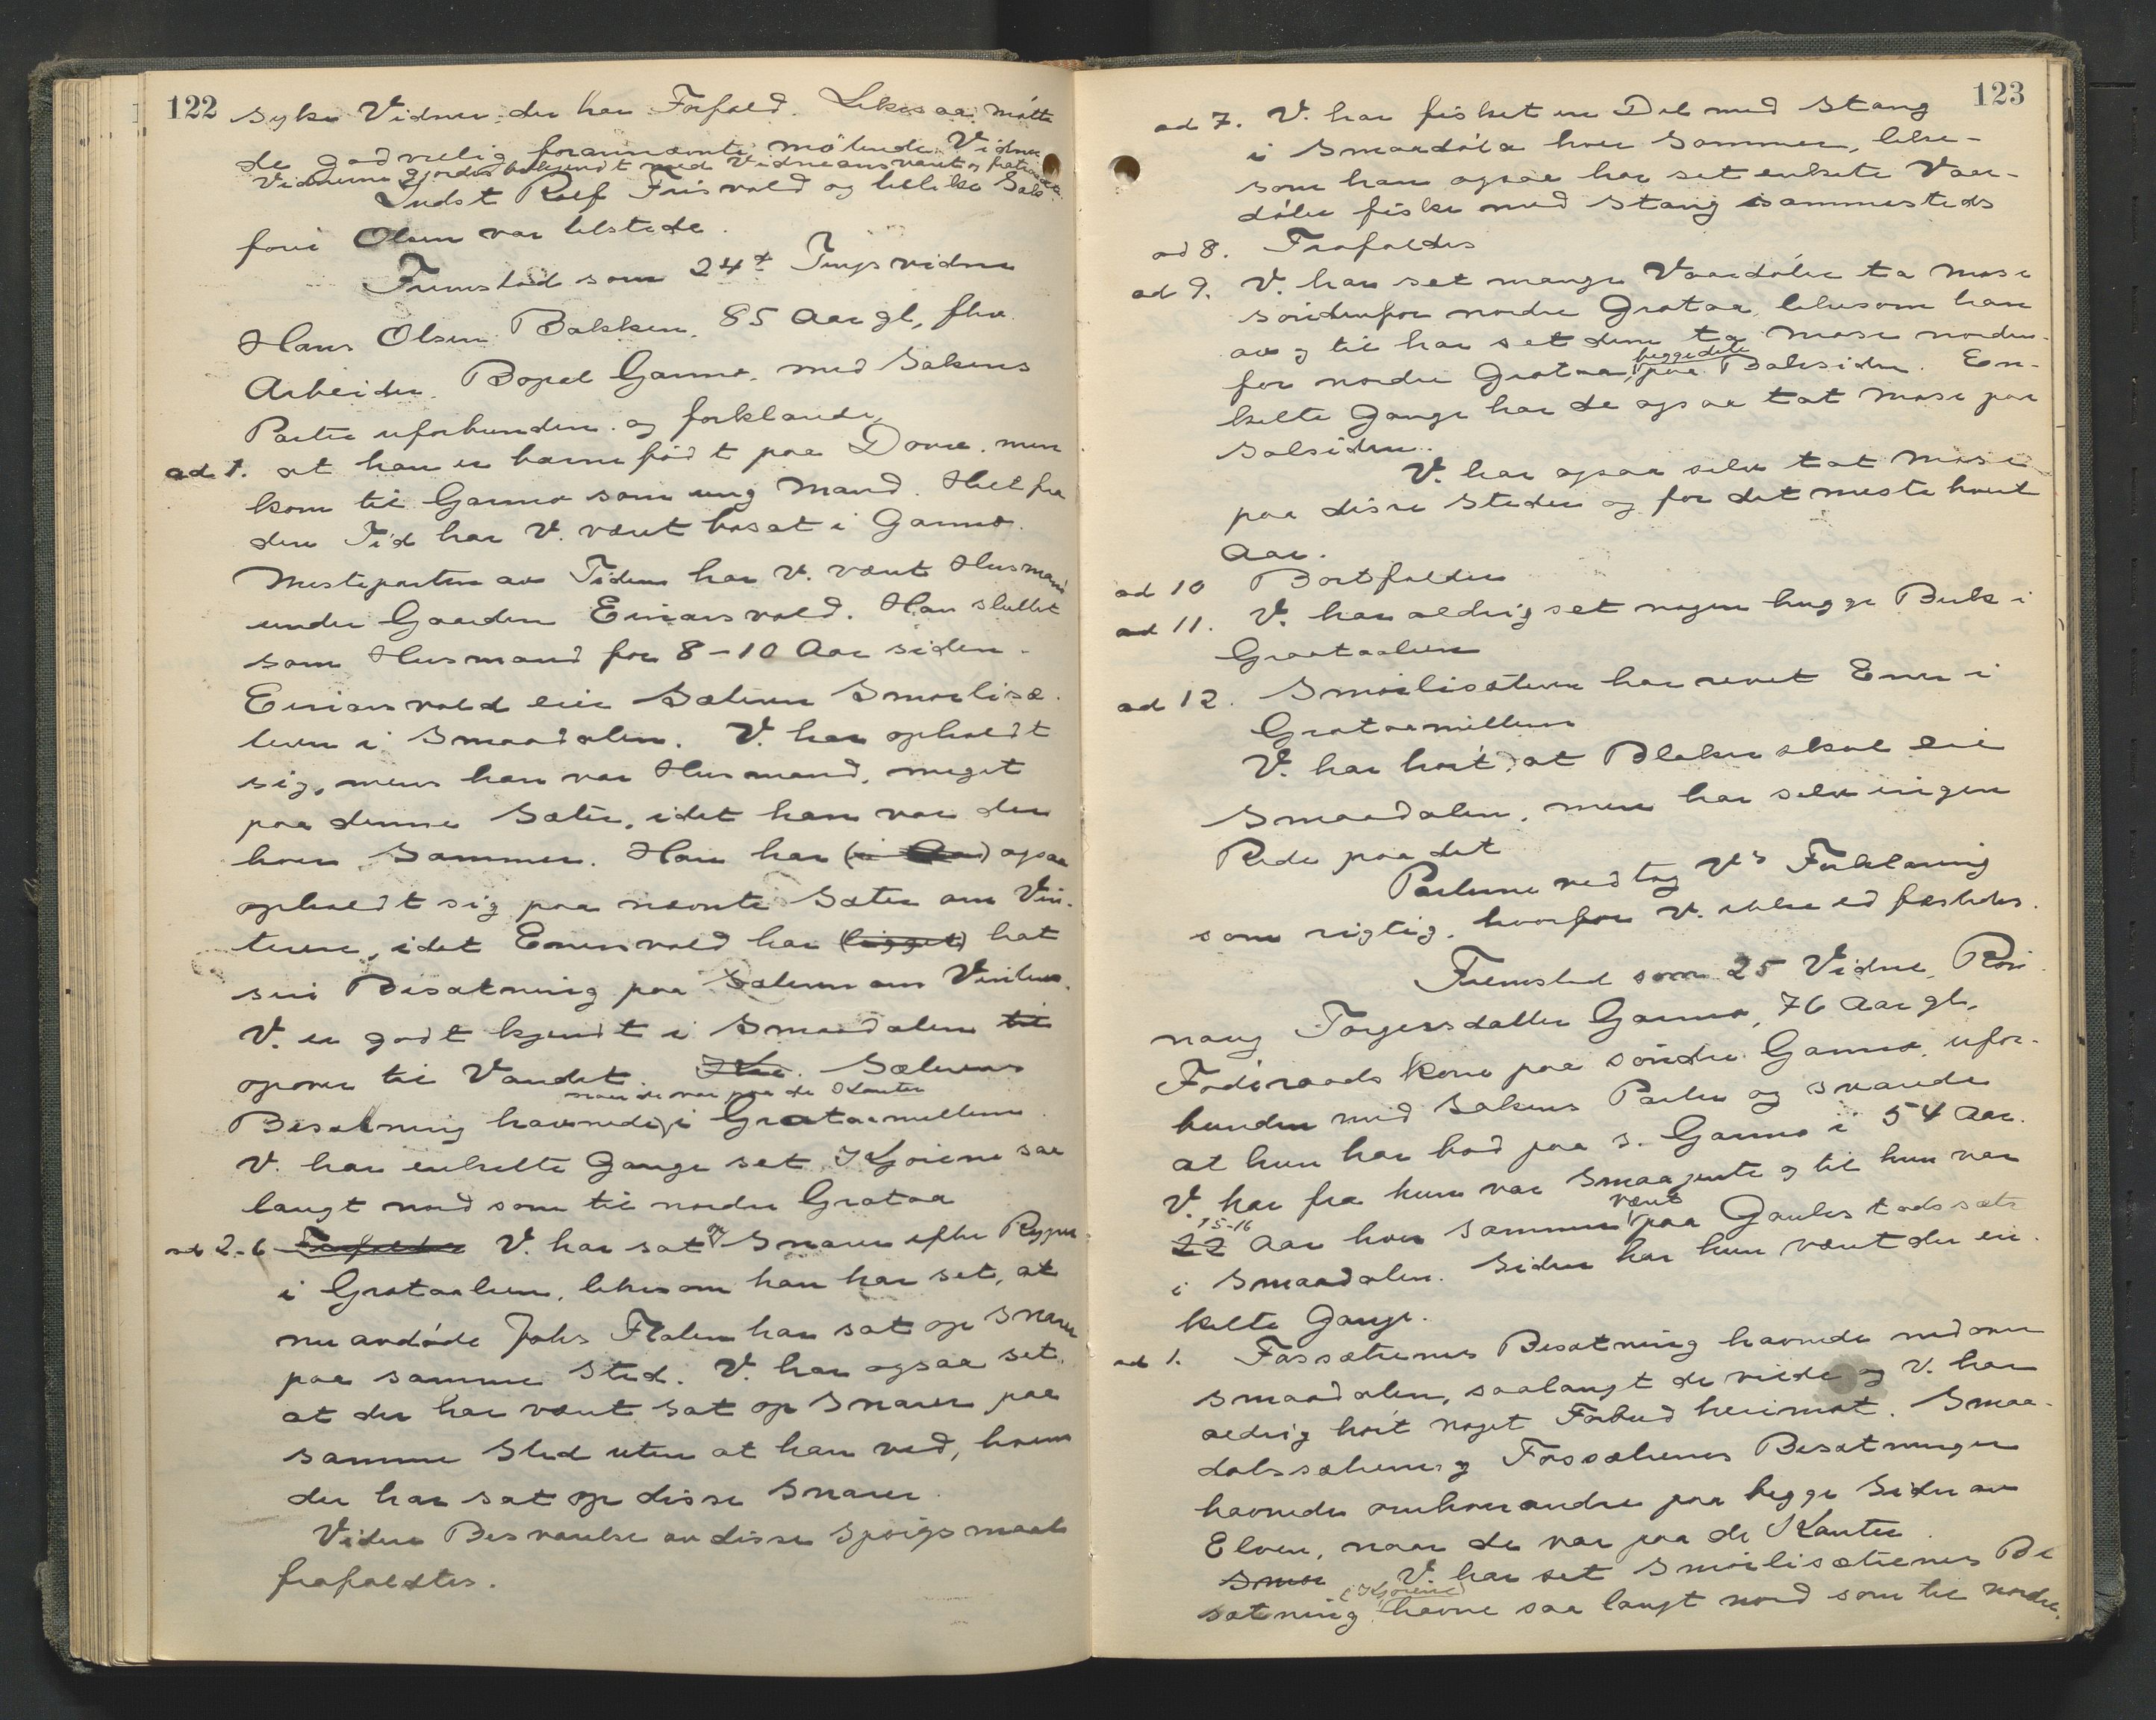 122
syke Vidner der har Forfald. Likesaa møtte
de godvillig forannævnte møtende Vidner
Vidnerne gjordes bekjendt med Vidneansvaret og fratraadte
Indst Rolf Friisvold og likeliko Sak-
fører Olsen var tilstede.
Fremstod som 24de Tingsvidne
Hans Olsen Bakken, 85 Aar gl, fhv.
Arbeider. Bopæl Garmo, med Sakens
Parter uforbunden og forklarede,
ad 1. at han er barnefødt paa Dovre, men
kom til Garmo som ung Mand. Helt fra
den Tid har V. været bosat i Garmo.
Mesteparten av Tiden har V. været Husmand
under Gaarden Einarsvold. Han sluttet
som Husmand for 8-10 Aar siden.
Einarsvold eier Sæteren Smørlisæ-
teren i Smaadalen. V. har opholdt
sig, mens han var Husmand, meget
paa denne Sæter, idet han var der
hver Sommer. Han har (i Aar) ogsaa
opholdt sig paa nævnte Sæter om Vin-
teren, idet Einersvold har (ligget) hat
sin Besætning paa Sæteren om Vinteren.
V. er godt kjendt i Smaadalen til
opover til Vandet. Ikke. Sæterens
naar de var paa de Kanter
Besætning havnedes i Grotaamellem
V. har enkelte Gange set Kjørene saa
langt nord som til nordre Grotaa
ad 2-6 Frafaldes V. har sat op Snarer efter Ryper
i Grotaalien, likesom han har set, at
nu avdøde Johs Flaten har sat op Snarer
paa samme Sted. V. har ogsaa set,
at der har været sat op Snarer paa
samme Sted uten at han ved, hvem
der har sat op disse Snarer.
Videre Besvarelse av disse Spørgsmaal
frafaldtes.
123
ad 7. V. har fisket en Del med Stang
i Smaadøla hver Sommer, like-
som han ogsaa har set enkelte Vaar-
døler fiske med Stang sammesteds
ad 8. Frafaldes
ad 9. V. har set mange Vaardøler ta Mose
søndenfor nordre Grotaa, likesom han
av og til har set dem ta Mose norden-
for nordre Grotaa, beggedele paa Baksiden. En-
kelte Gange har de ogsaa tat Mose paa
Solsiden.
V. har ogsaa selv tat Mose
paa disse Steder og for det meste hvert
Aar.
ad 10 Bortfalder
ad 11. V. har aldrig set nogen hugge Birk i
Graataalien
ad 12. Smørlisæteren har revet Ener i
Grotaamellem
V. har hørt, at Blaker skal eie
Smaadalen, men har selv ingen
Rede paa det
Parterne vedtog V's Forklaring
som rigtig, hvorfor V. ikke edfæstedes.
Fremstod som 25 Vidne, Røn-
naug Torgersdatter Garmo, 76 Aar gl,
Føderaadskone paa søndre Garmo, ufor-
bunden med Sakens Parter og svarede
at hun har bod paa s. Garmo i 54 Aar.
V. har fra hun var Smaajente og til hun var
22 15-16 Aar hver Sommer været paa Gaukstadsæter
i Smaadalen. Siden har hun været der en-
kelte Gange.
ad 1. Fossæterenes Besætning havnede nedover
Smaadalen, saalangt de vilde og V. har
aldrig hørt noget Forbud herimot. Smaa-
dalssæterens og Fossæterenes Besætninger
havnede omhverandre paa begge Sider av
Elven, naar de var paa de Kanter.
Smør V. har set Smørlisæterenes Be
sætning (Kjørene) havne saa langt nord som til nordre